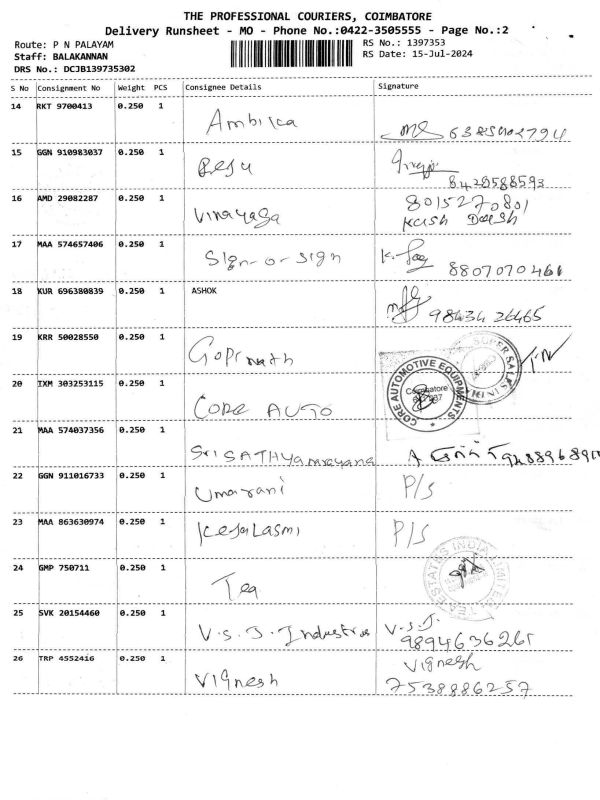 THE PROFESSIONAL COURIERS, COIMBATORE
Delivery Runsheet - MO - Phone No.:0422-3505555 - Page No.:2
Route: P N PALAYAM
RS No.: 1397353
Staff: BALAKANNAN
RS Date: 15-Jul-2024
DRS No.: DCJB139735302
S No Consignment No Weight PCS Consignee Details Signature
14 RKT 9700413 0.250 1 Ambika
15 GGN 910983037 0.250 1
8428588593
16 AMD 29082287 0.250 1 Vinayaga 8015270801
17 MAA 574657406 0.250 1 Sign-or-sign
8807070461
18 KUR 696380839 0.250 1 ASHOK
98434 26465
19 KRR 50028550 0.250 1 Gopinath
SUPER SALES INDIA
CORE AUTOMOTIVE EQUIPMENTS
Coimbatore
20 IXM 303253115 0.250 1 CORE AUTO
21 MAA 574037356 0.250 1 Sri SATHYanarayana
22 GGN 911016733 0.250 1 Umarani P/S
23 MAA 863630974 0.250 1 P/S
TEA ESTATES INDIA LIMITED
24 GMP 750711 0.250 1 Tea
25 SVK 20154460 0.250 1 V.S.J. Industries V.S.J.
9894636261
26 TRP 4552416 0.250 1 Vignesh Vignesh
7538886257